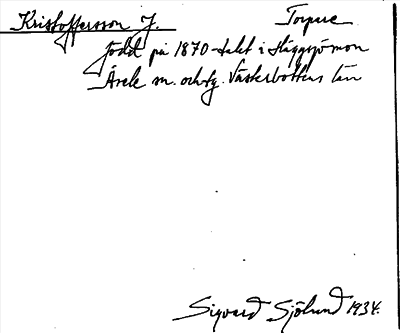 Kristoffersson J. Torpare
född på 1870-talet i Häggsjömon
Åsele sn. och fg. Västerbottens län
Sigvard Sjölund 1934.